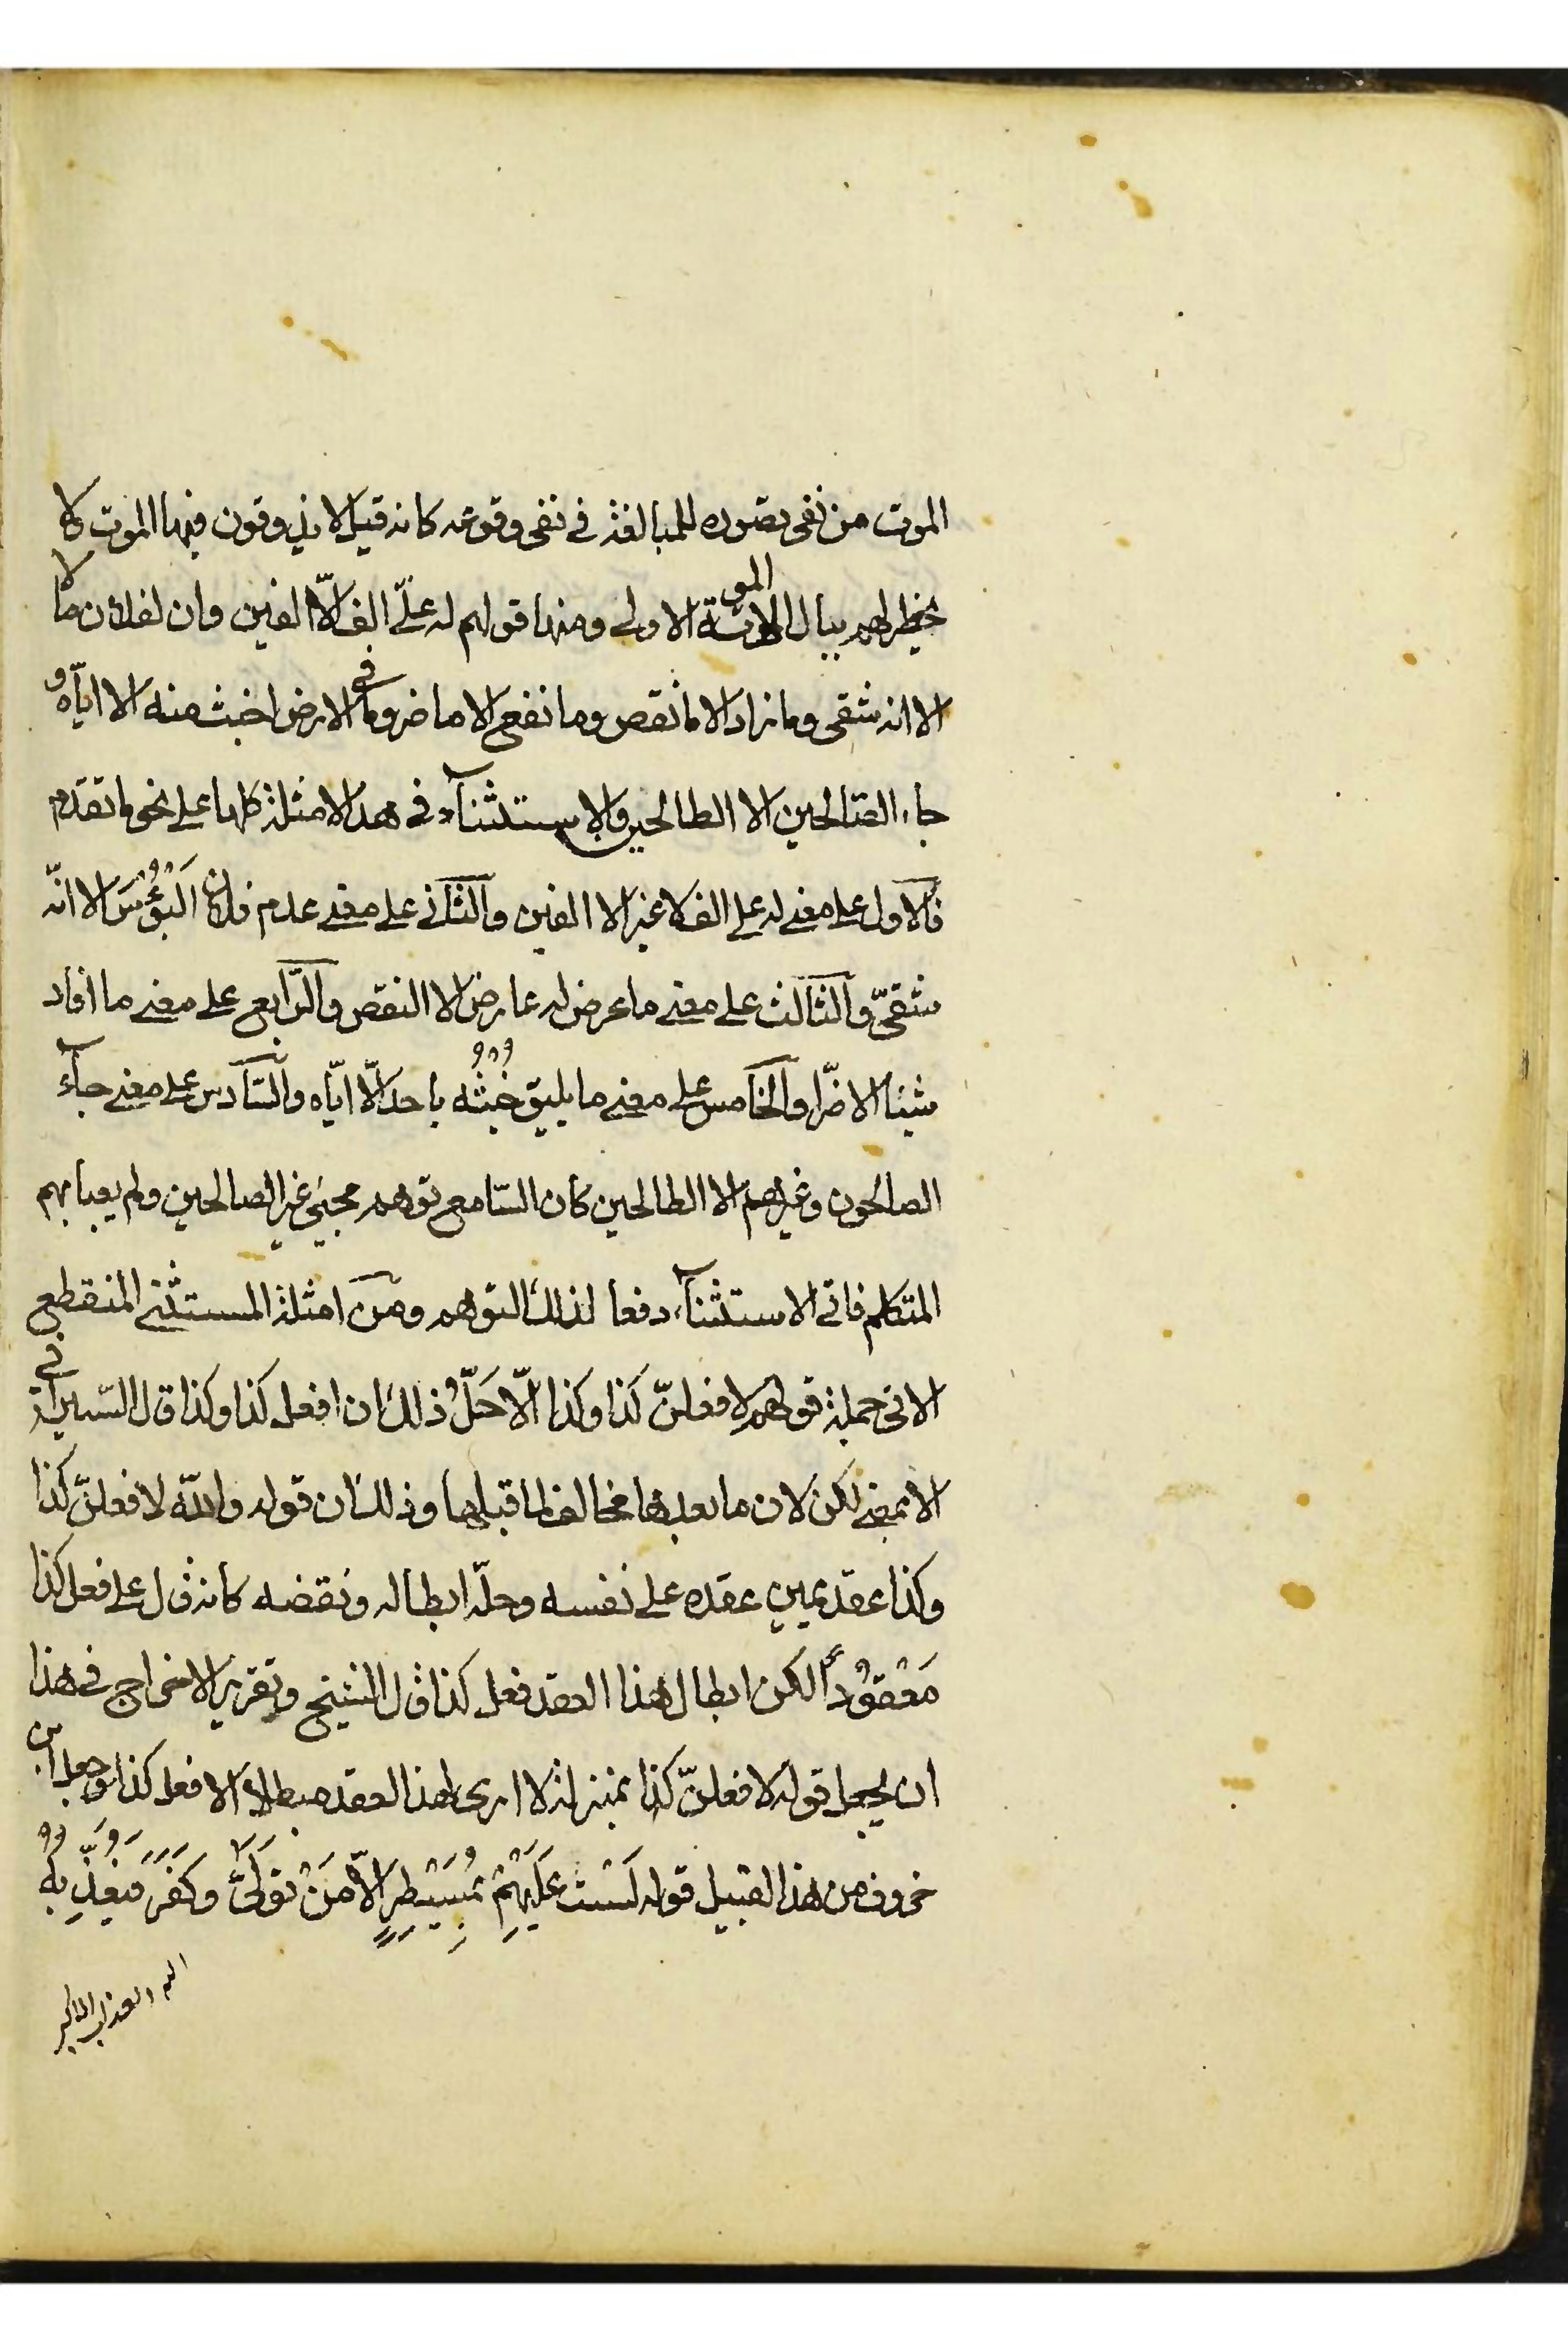 الموت من نفى تصوره للمبالغة في نفى وقوعه كانه قيل لا يذوقون فيها الموت ولا
يخطر لهم ببال الا الموتة الاولى ومنها قولهم له عليّ الف الّا الفين وان لفلان مالا
الا انه شقى وما زاد الا ما نقص وما نفع الا ما ضر وما في الارض اخبث منه الا ايّاه و
جاء الصّالحين الا الطالحين والاستثنآء في هذه الامثلة كلها على نحو ما تقدم
فالاول على معنى له على الف لا غير الا الفين والثاني على معنى عدم فلان البُؤُسَ الا انّه
شقيّ والثالث على معنى ما عرض له عارض الا النقص والرّابع على معنى ما افاد
شيئا الا ضرّا والخامس على معنى ما يليق خُبثُه باحد الّا ايّاه والسّادس على معنى جآء
الصالحون وغيرهم الا الطالحين كان السّامع توهم مجيئ غير الصالحين ولم يعبا بهم
المتكلم فاتى الاستثنآء دفعا لذلك التوهم ومن امثلة المستثنى المنقطع
الاتى جملة قولهم لافعلنّ كذا وكذا الّا حَلُّ ذلك ان افعل كذا وكذا قال السّيرافي
الا بمعنى لكن لان ما بعدها مخالف لما قبلها وذلك ان قوله والله لافعلنّ كذا
وكذا عقد يمين عقده على نفسه وحلّه ابطاله ونقضه كانه قال على فعل كذا
مَعْقوُداً لكن ابطال هذا العقد فعل كذا قال الشيخ وتقرير الاخراج في هذا
ان يجعل قوله لافعلنّ كذا بمنزلة لا ارى لهذا العقد مبطلا الا فعل كذا وجعل ابن
خروف من هذا القبيل قوله لَسْتَ عَلَيْهِمْ بِمُسَيْطِرٍ الّا مَنْ تَوَلّىَ وَكَفَرَ فَيُعَذِّبُهُ
الله العذاب الاكبر